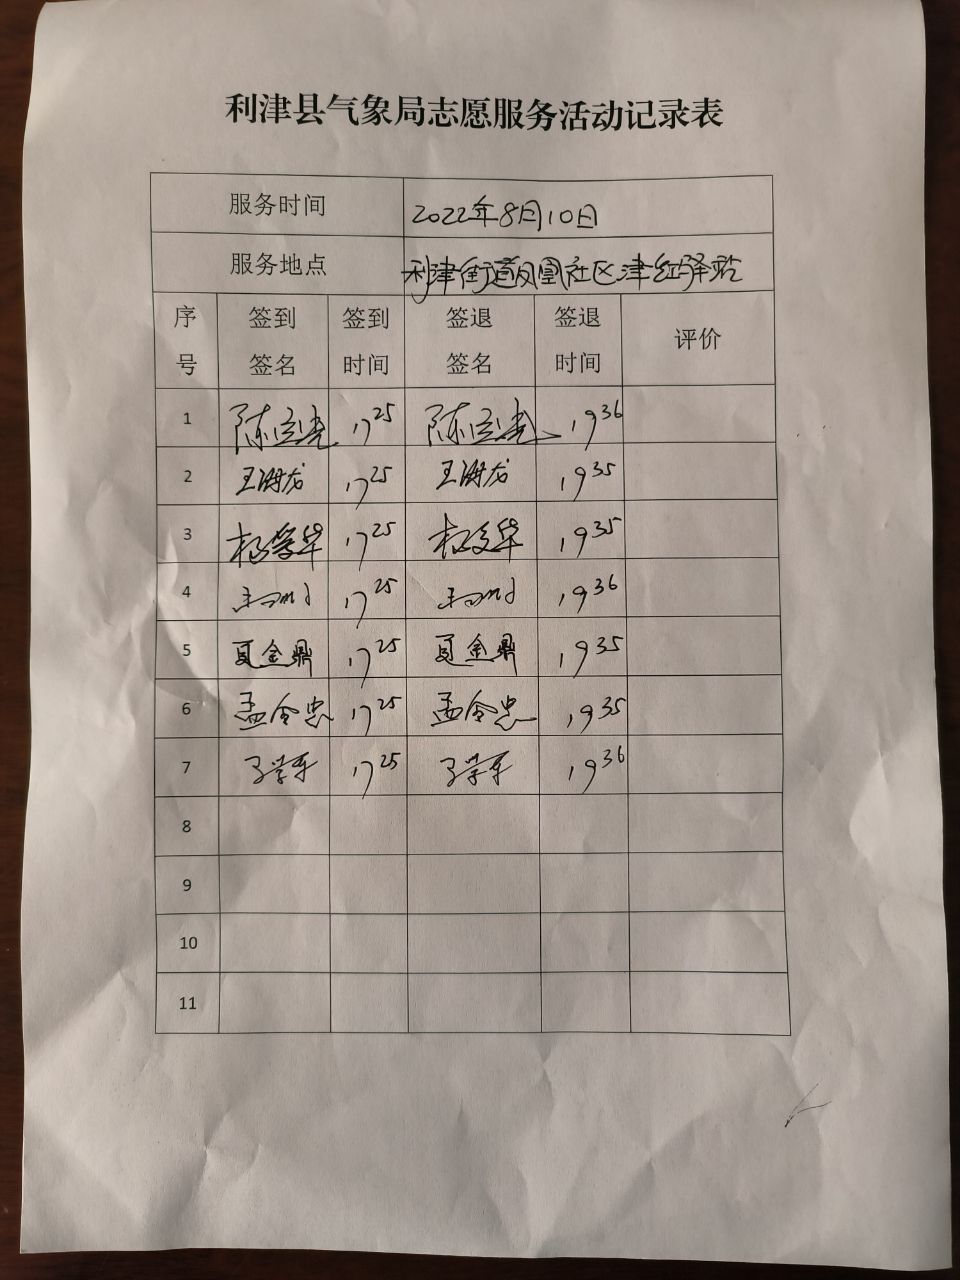 利津县气象局志愿服务活动记录表
服务时间 2022年8月10日
服务地点 利津街道凤凰社区津红驿站
序号 签到签名 签到时间 签退签名 签退时间 评价
1 17 25 19 36
2 17 25 19 35
3 17 25 19 35
4 17 25 19 36
5 夏金鼎 17 25 夏金鼎 19 35
6 孟令忠 17 25 孟令忠 19 35
7 17 25 19 36
8
9
10
11